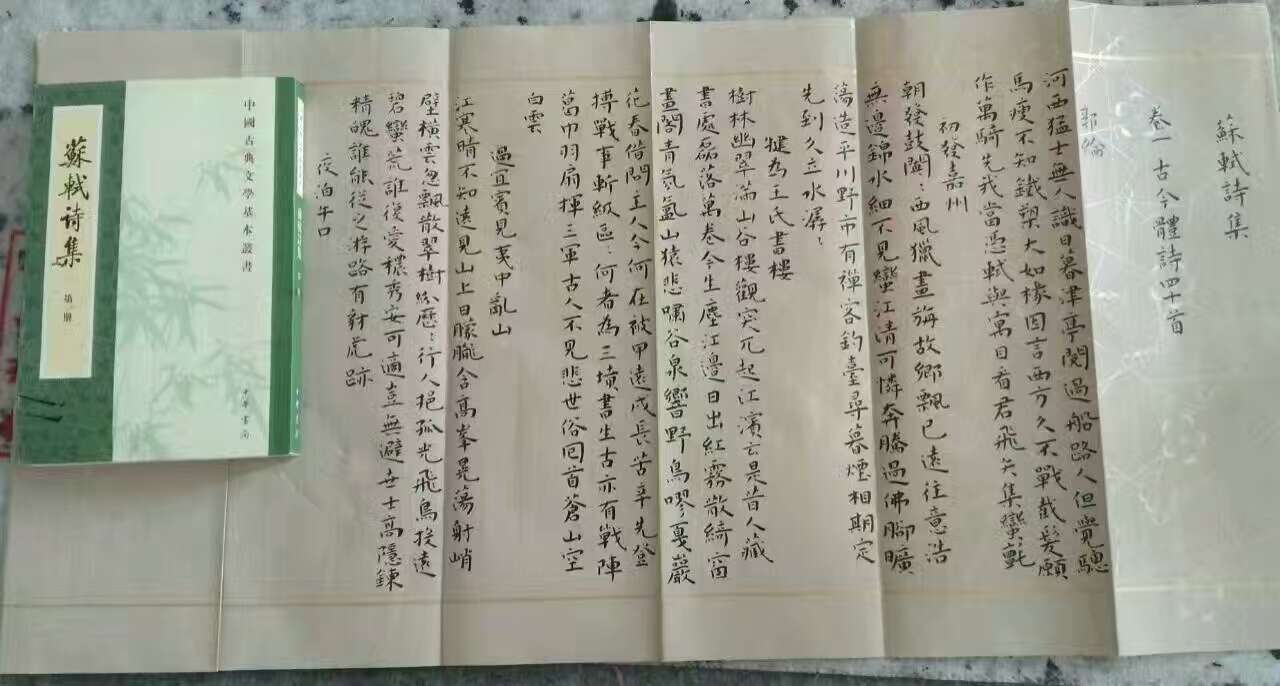 蘇軾詩集
卷一 古今體詩四十首
郭綸
河西猛士無人識日暮津亭閱過船路人但覺驄
馬瘦不知鐵槊大如椽因言西方久不戰截髮願
作萬騎先我當憑軾與寓目看君飛矢集蠻氈
初發嘉州
朝發鼓闐：西風獵畫旃故鄉飄已遠往意浩
無邊錦水細不見蠻江清可憐奔騰過佛腳曠
蕩造平川野市有禪客釣臺尋暮煙相期定
先到久立水潺：
犍為王氏書樓
樹林幽翠滿山谷樓觀突兀起江濱云是昔人藏
書處磊落萬卷今生塵江邊日出紅霧散綺窗
畫閣青氛氳山猿悲嘯谷泉響野鳥嘐戛巖
花春借問主人今何在被甲遠戍長苦辛先登
搏戰事斬級區：何者為三墳書生古亦有戰陣
葛巾羽扇揮三軍古人不見悲世俗回首蒼山空
白雲
過宜賓見夷中亂山
江寒晴不知遠見山上日朦朧含高峯晃蕩射峭
壁橫雲忽飄散翠樹紛歷：行人挹孤光飛鳥投遠
碧蠻荒誰復愛穠秀安可適豈無避世士高隱鍊
精魄誰能從之游路有豺虎跡
夜泊牛口
中國古典文學基本叢書
蘇軾詩集
第一冊
中華書局